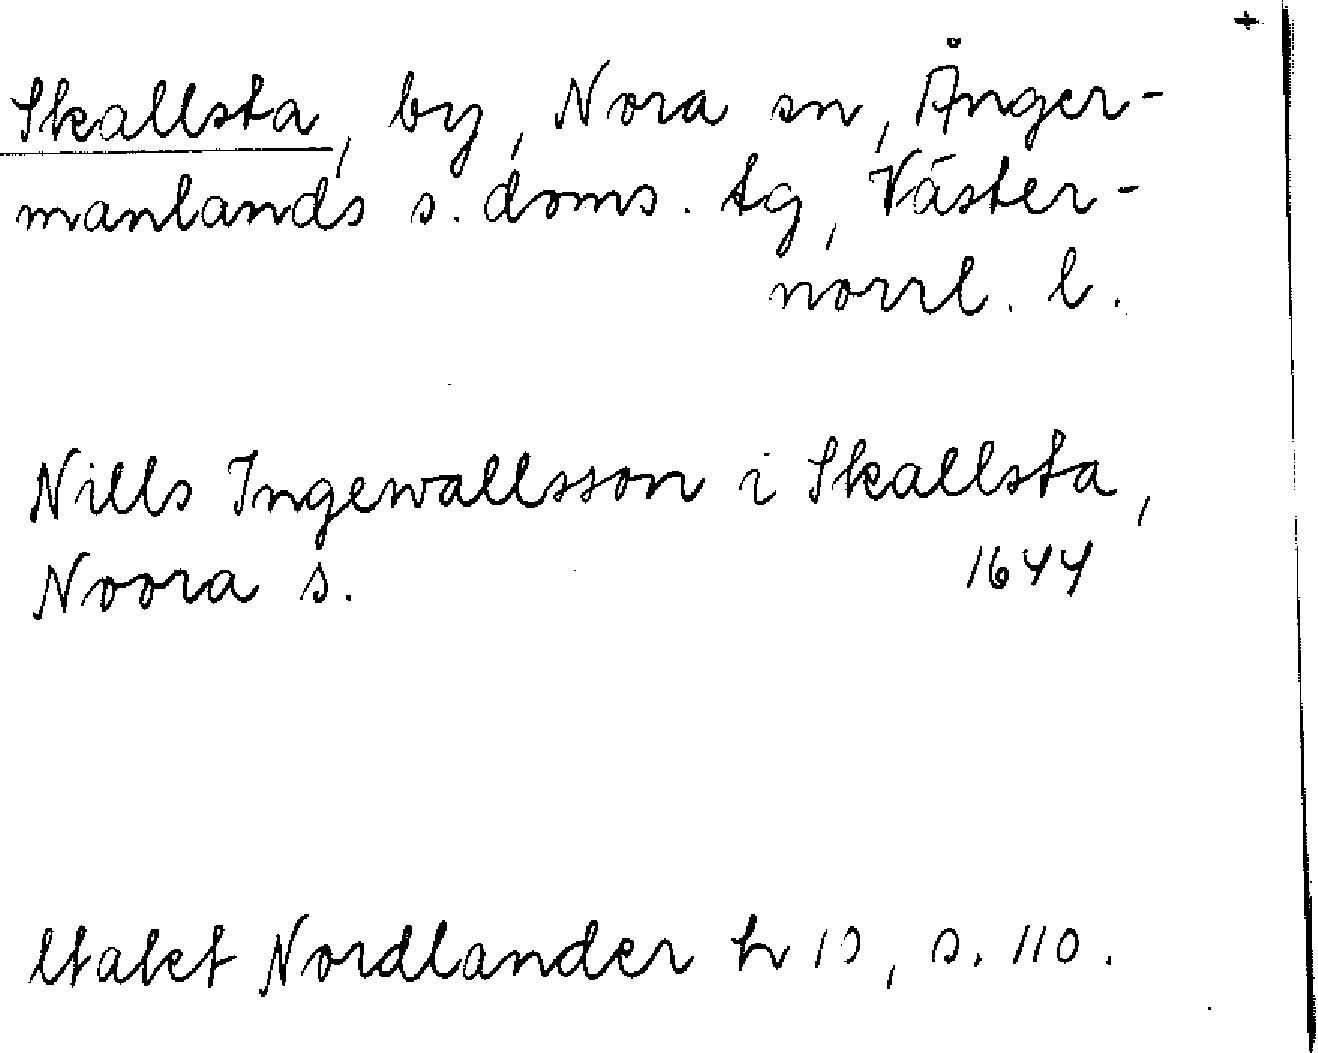 +
Skallsta, by, Nora sn, Ånger-
manlands s. doms. tg, Väster-
norrl. l.
Nills Ingewallsson i Skallsta,
Noora s. 1644
Nordlander h , s. 110.